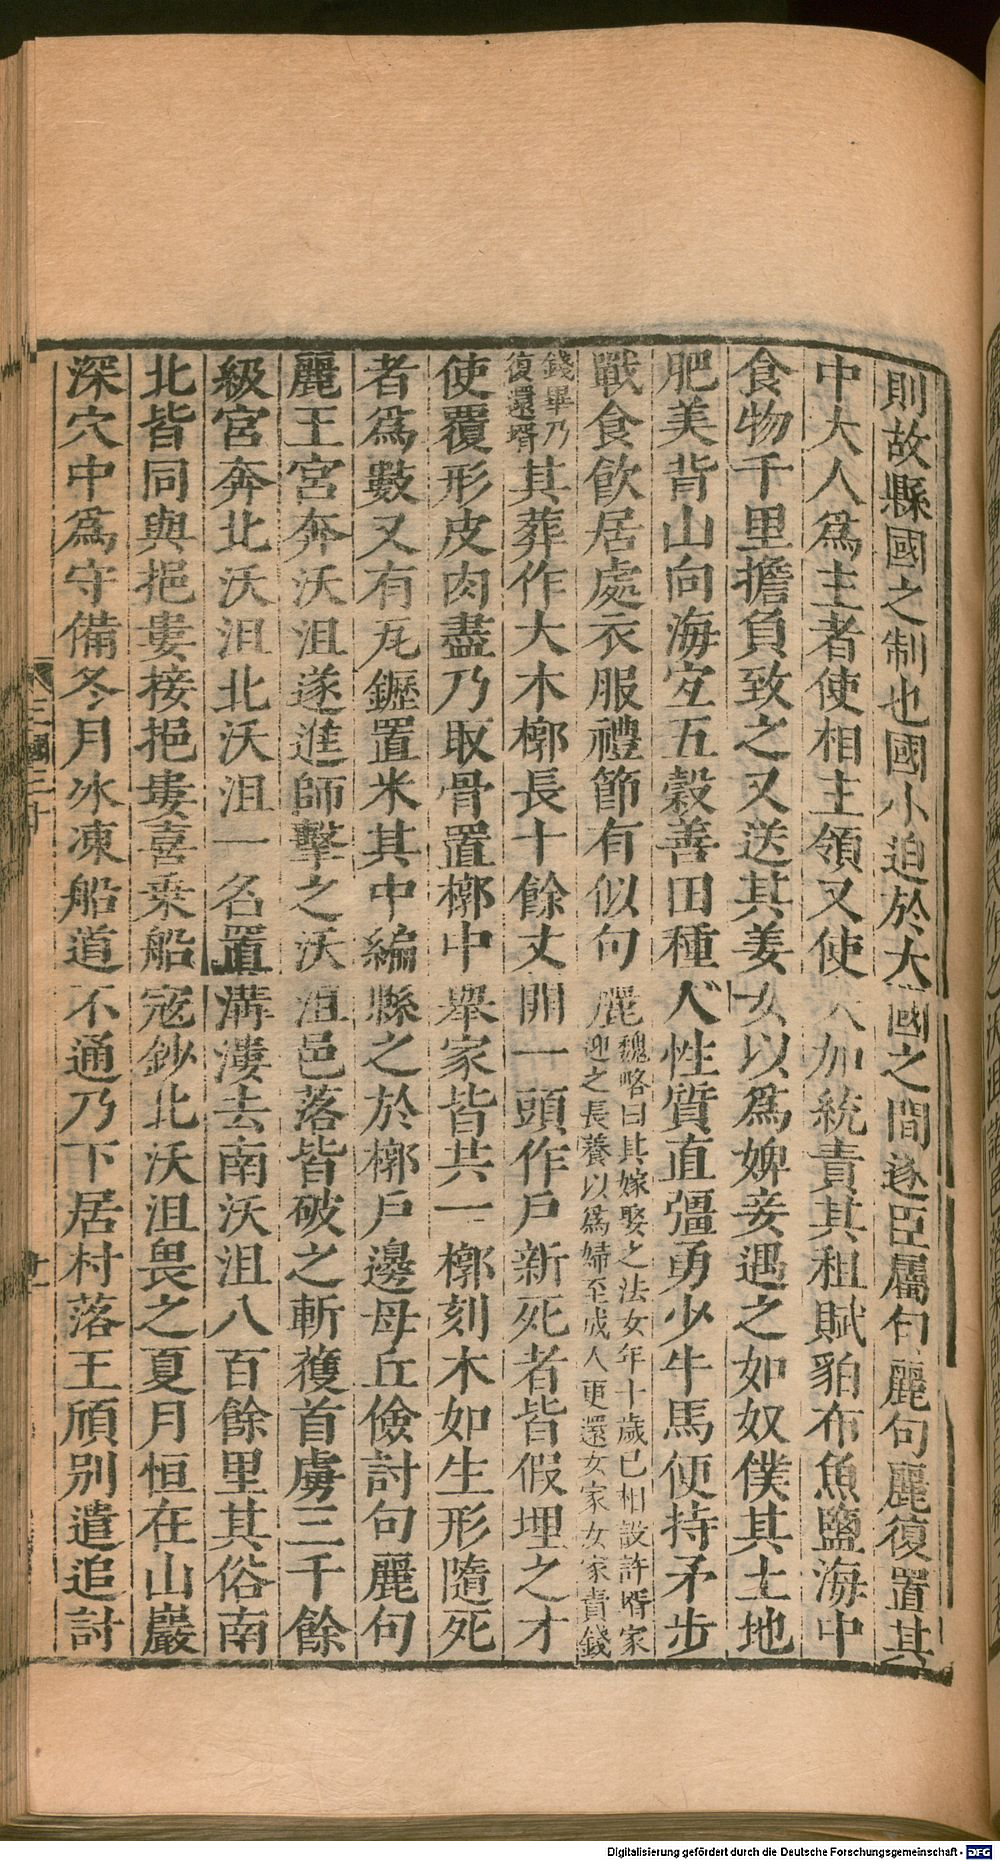 則故縣國之制也國小迫於大國之間遂臣屬句麗句麗復置其
中大人爲主者使相主領又使大加統責其租賦貊布魚鹽海中
食物千里擔負致之又送其美女以爲婢妾遇之如奴僕其土地
肥美背山向海宐五穀善田種人性質直彊勇少牛馬便持矛步
戰食飲居處衣服禮節有似句麗魏略曰其嫁娶之法女年十歲已相設許壻家
迎之長養以爲婦至成人更還女家女家責錢
錢畢乃
復還壻
其葬作大木槨長十餘丈開一頭作戶新死者皆假埋之才
使覆形皮肉盡乃取骨置槨中舉家皆共一槨刻木如生形隨死
者爲數又有瓦䥶置米其中編縣之於槨戶邊毋丘儉討句麗句
麗王宮奔沃沮遂進師擊之沃沮邑落皆破之斬獲首虜三千餘
級宮奔北沃沮北沃沮一名置溝漊去南沃沮八百餘里其俗南
北皆同與挹婁接挹婁喜乗船寇鈔北沃沮畏之夏月恒在山巖
深穴中爲守備冬月冰凍船道不通乃下居村落王頎別遣追討
三國三十
十一
Digitalisierung gefördert durch die Deutsche Forschungsgemeinschaft - DFG